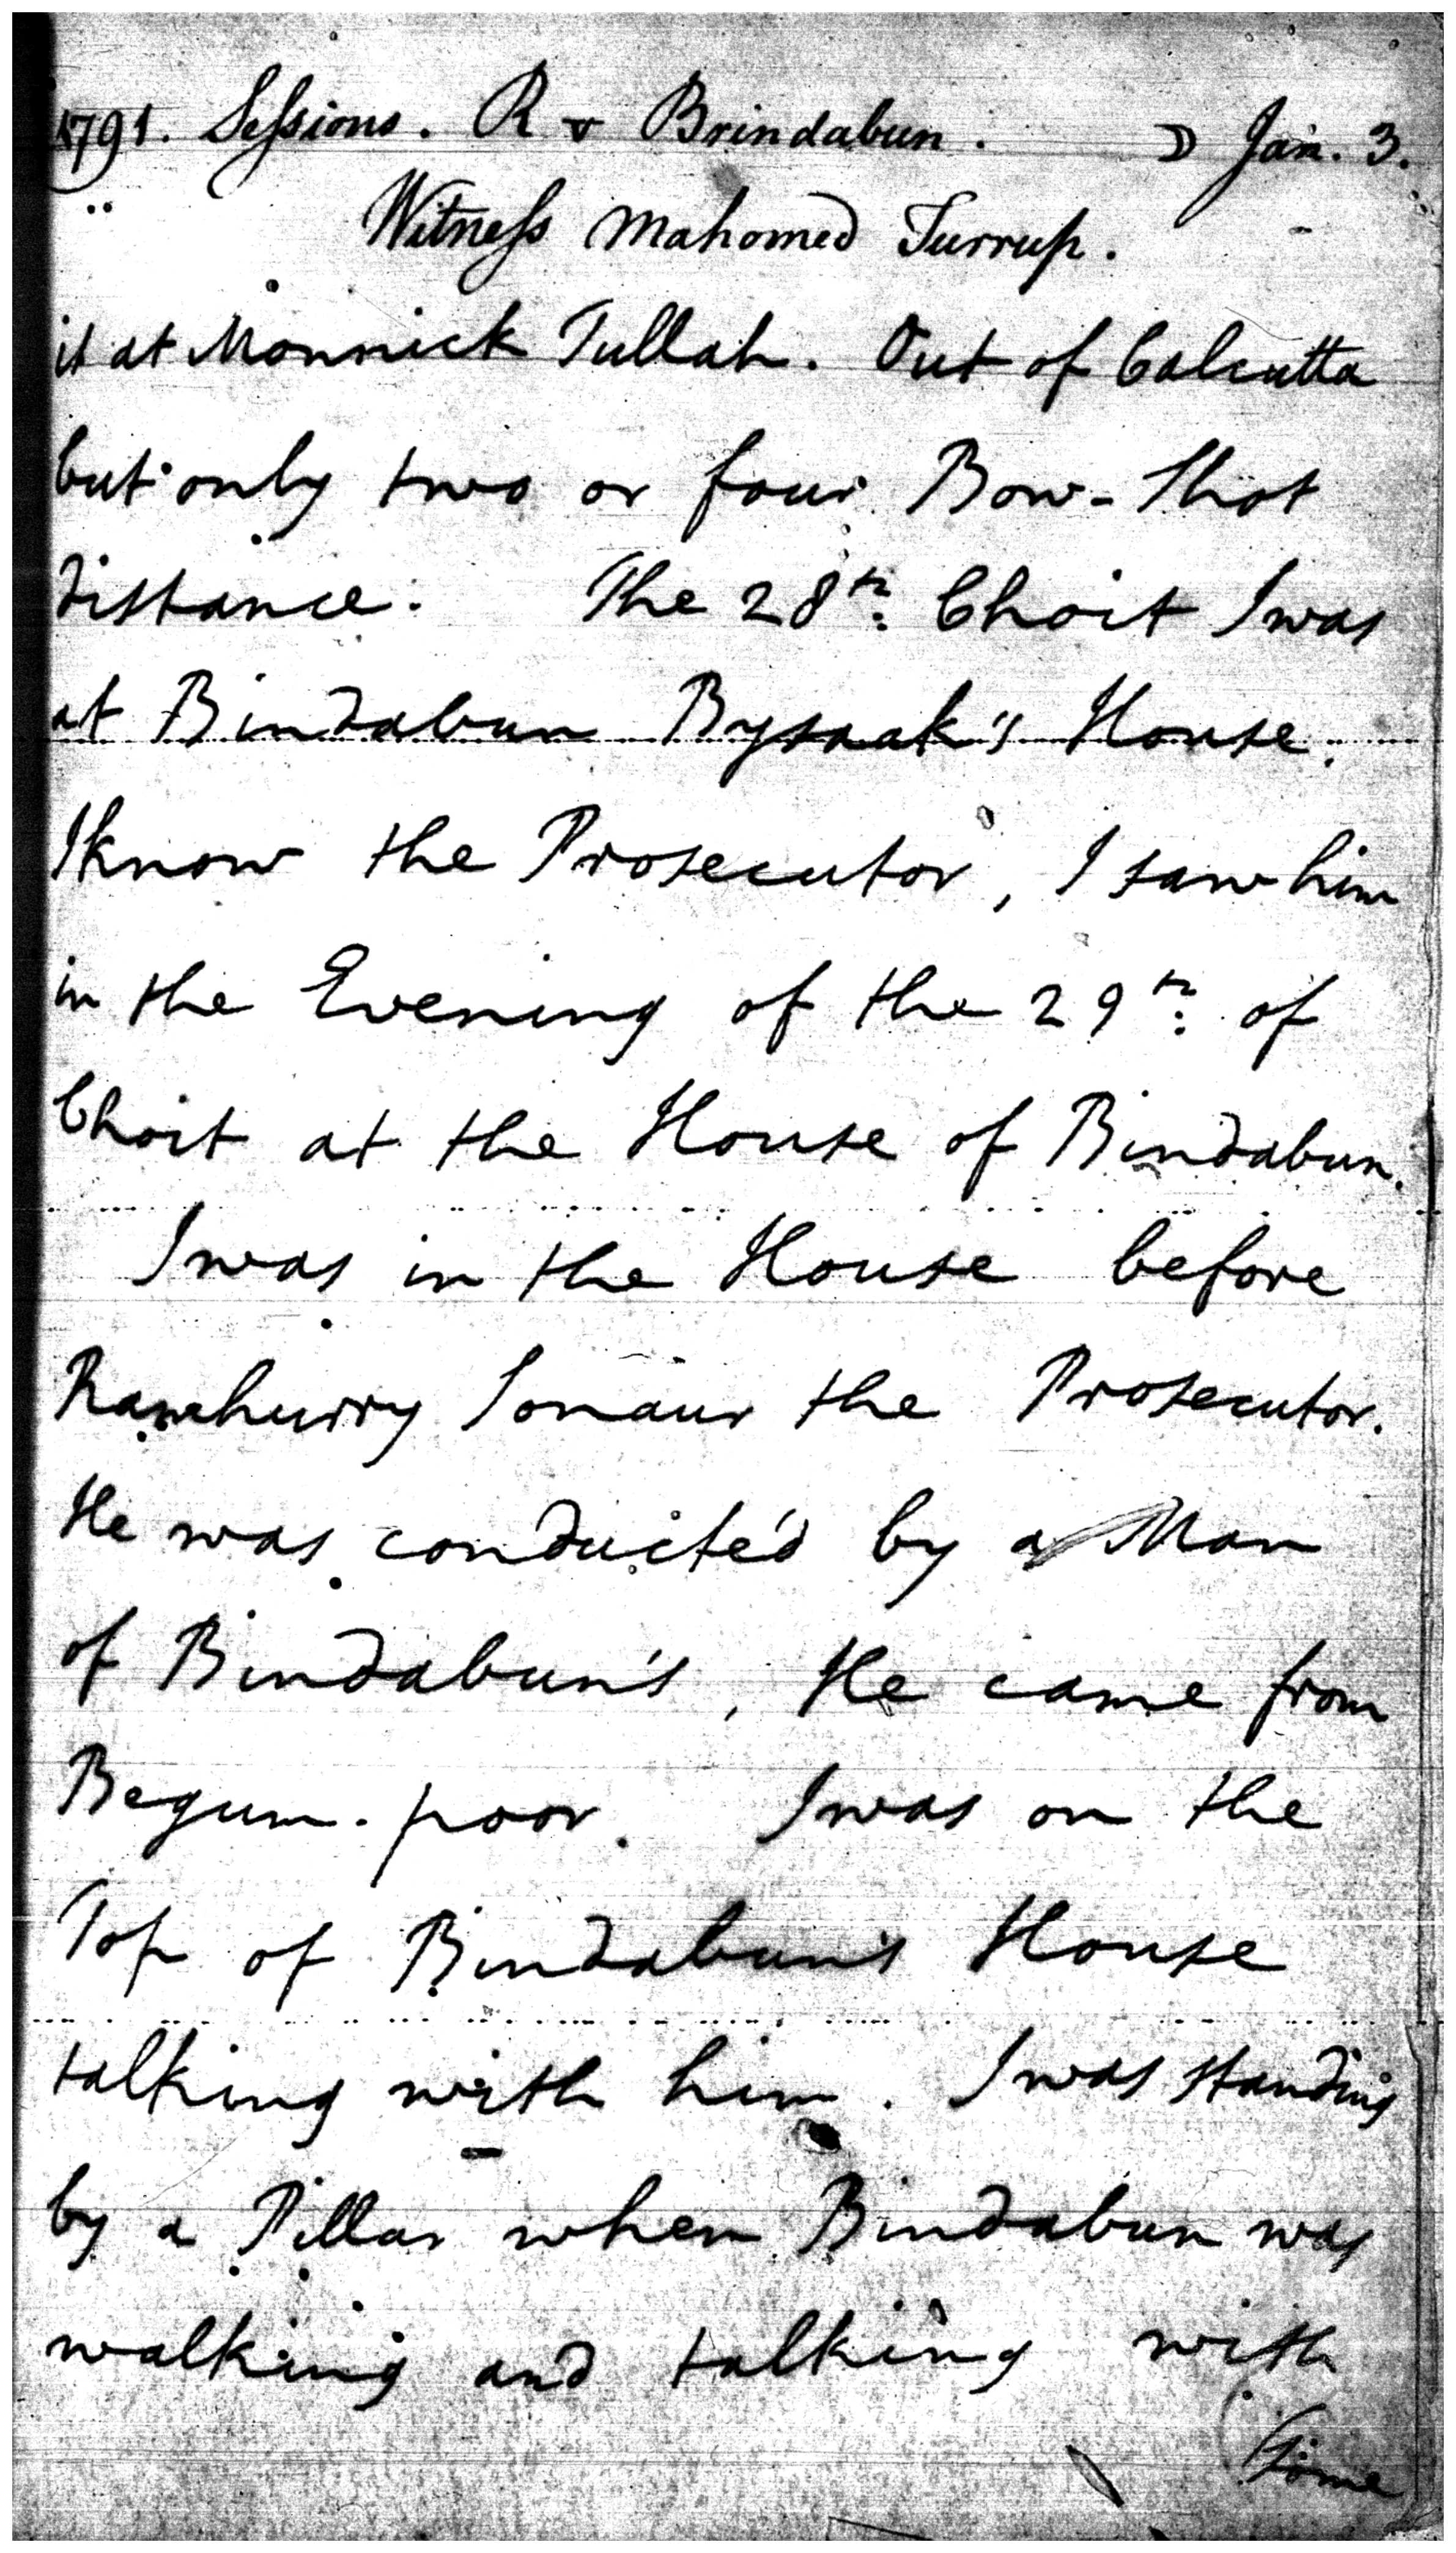 1791. Sessions. R v Brindabun. ☽ Jan. 3.
Witness Mahomed Turrup.
it at Monnick Tullah. Out of Calcutta
but only two or four Bow-Shot
distance. The 28th Choit I was
at Bindabun Bysaak's House.
I know the Prosecutor, I saw him
in the Evening of the 29th of
Choit at the House of Bindabun.
I was in the House before
Ramhurry Sonaur the Prosecutor.
He was conducted by a Man
of Bindabun's, He came from
Begum-poor. I was on the
Top of Bindabun's House
talking with him. I was standing
by a Pillar when Bindabun was
walking and talking with
some